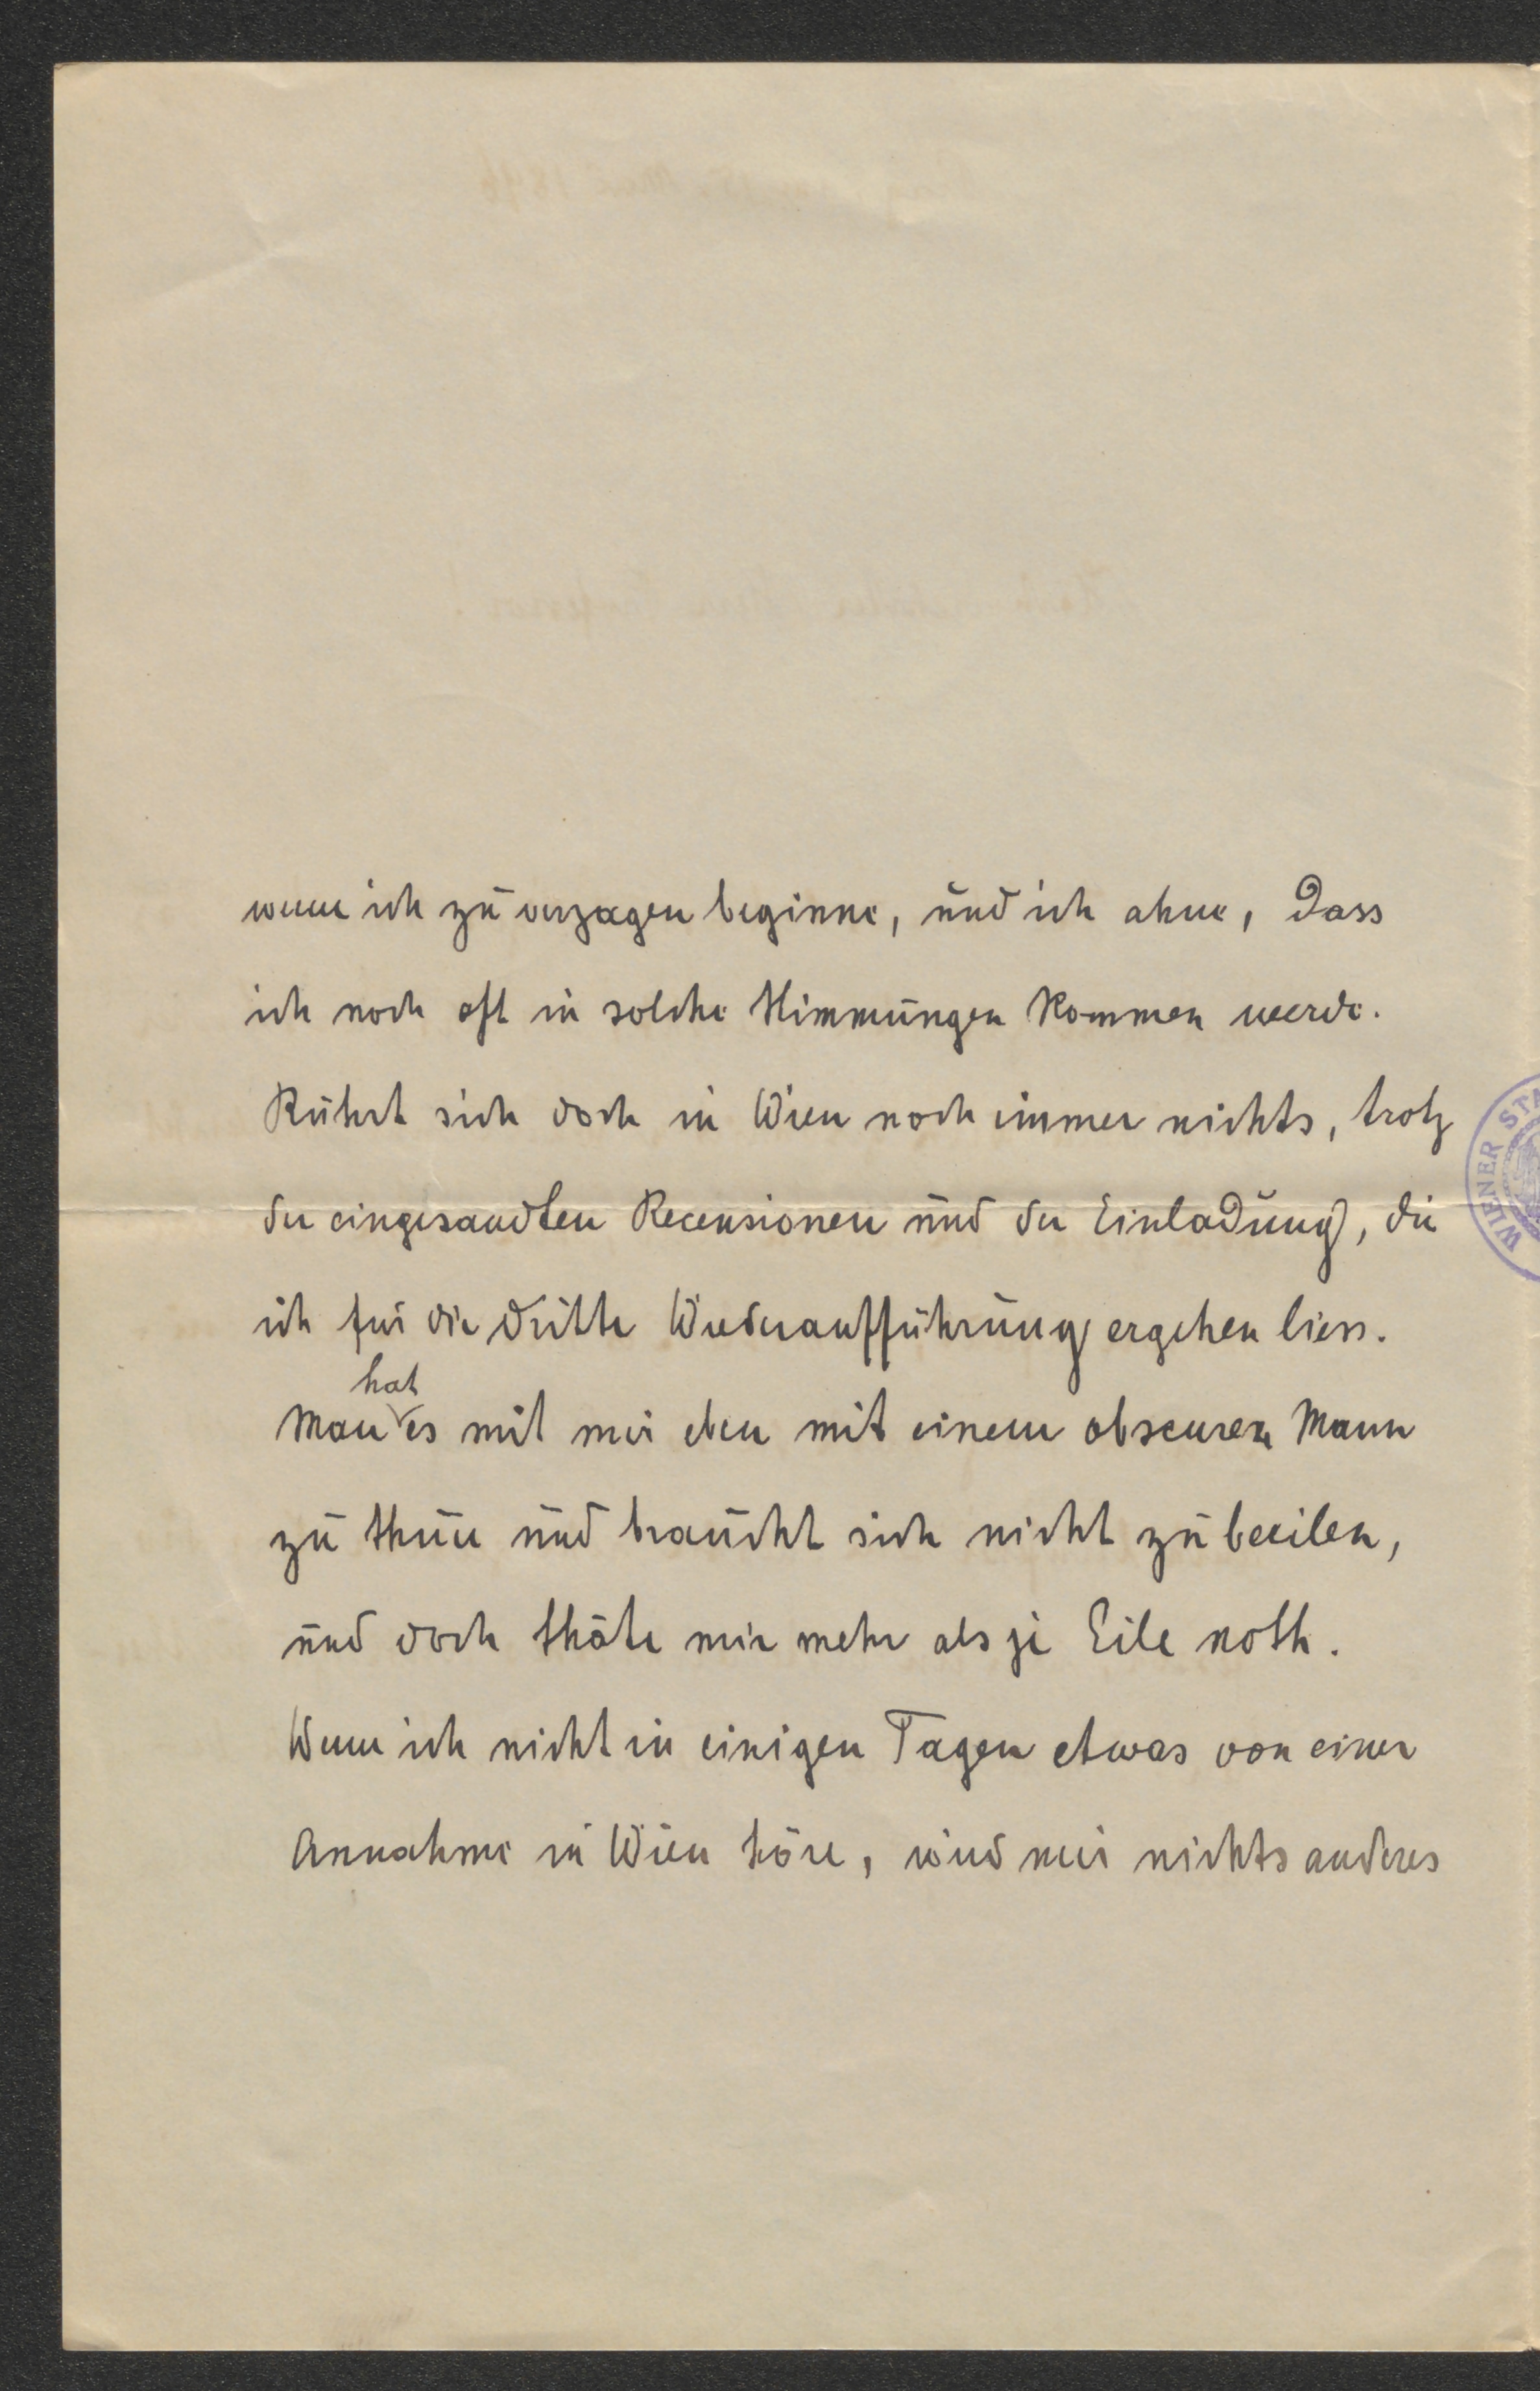 wenn ich zu verzagen beginne, und ich ahne, dass
ich noch oft in solche Stimmungen kommen werde.
Rührt sich doch in Wien noch immer nichts, trotz
der eingesandten Recensionen und der Einladung, die
ich für die dritte Wiederaufführung ergehen liess.
hat
Man es mit mir eben mit einem obscuren Mann
zu thun und braucht sich nicht zu beeilen,
und doch thäte mir mehr als je Eile noth.
Wenn ich nicht in einigen Tagen etwas von einer
Annahme in Wien höre, wird mir nichts anderes
WIENER STA